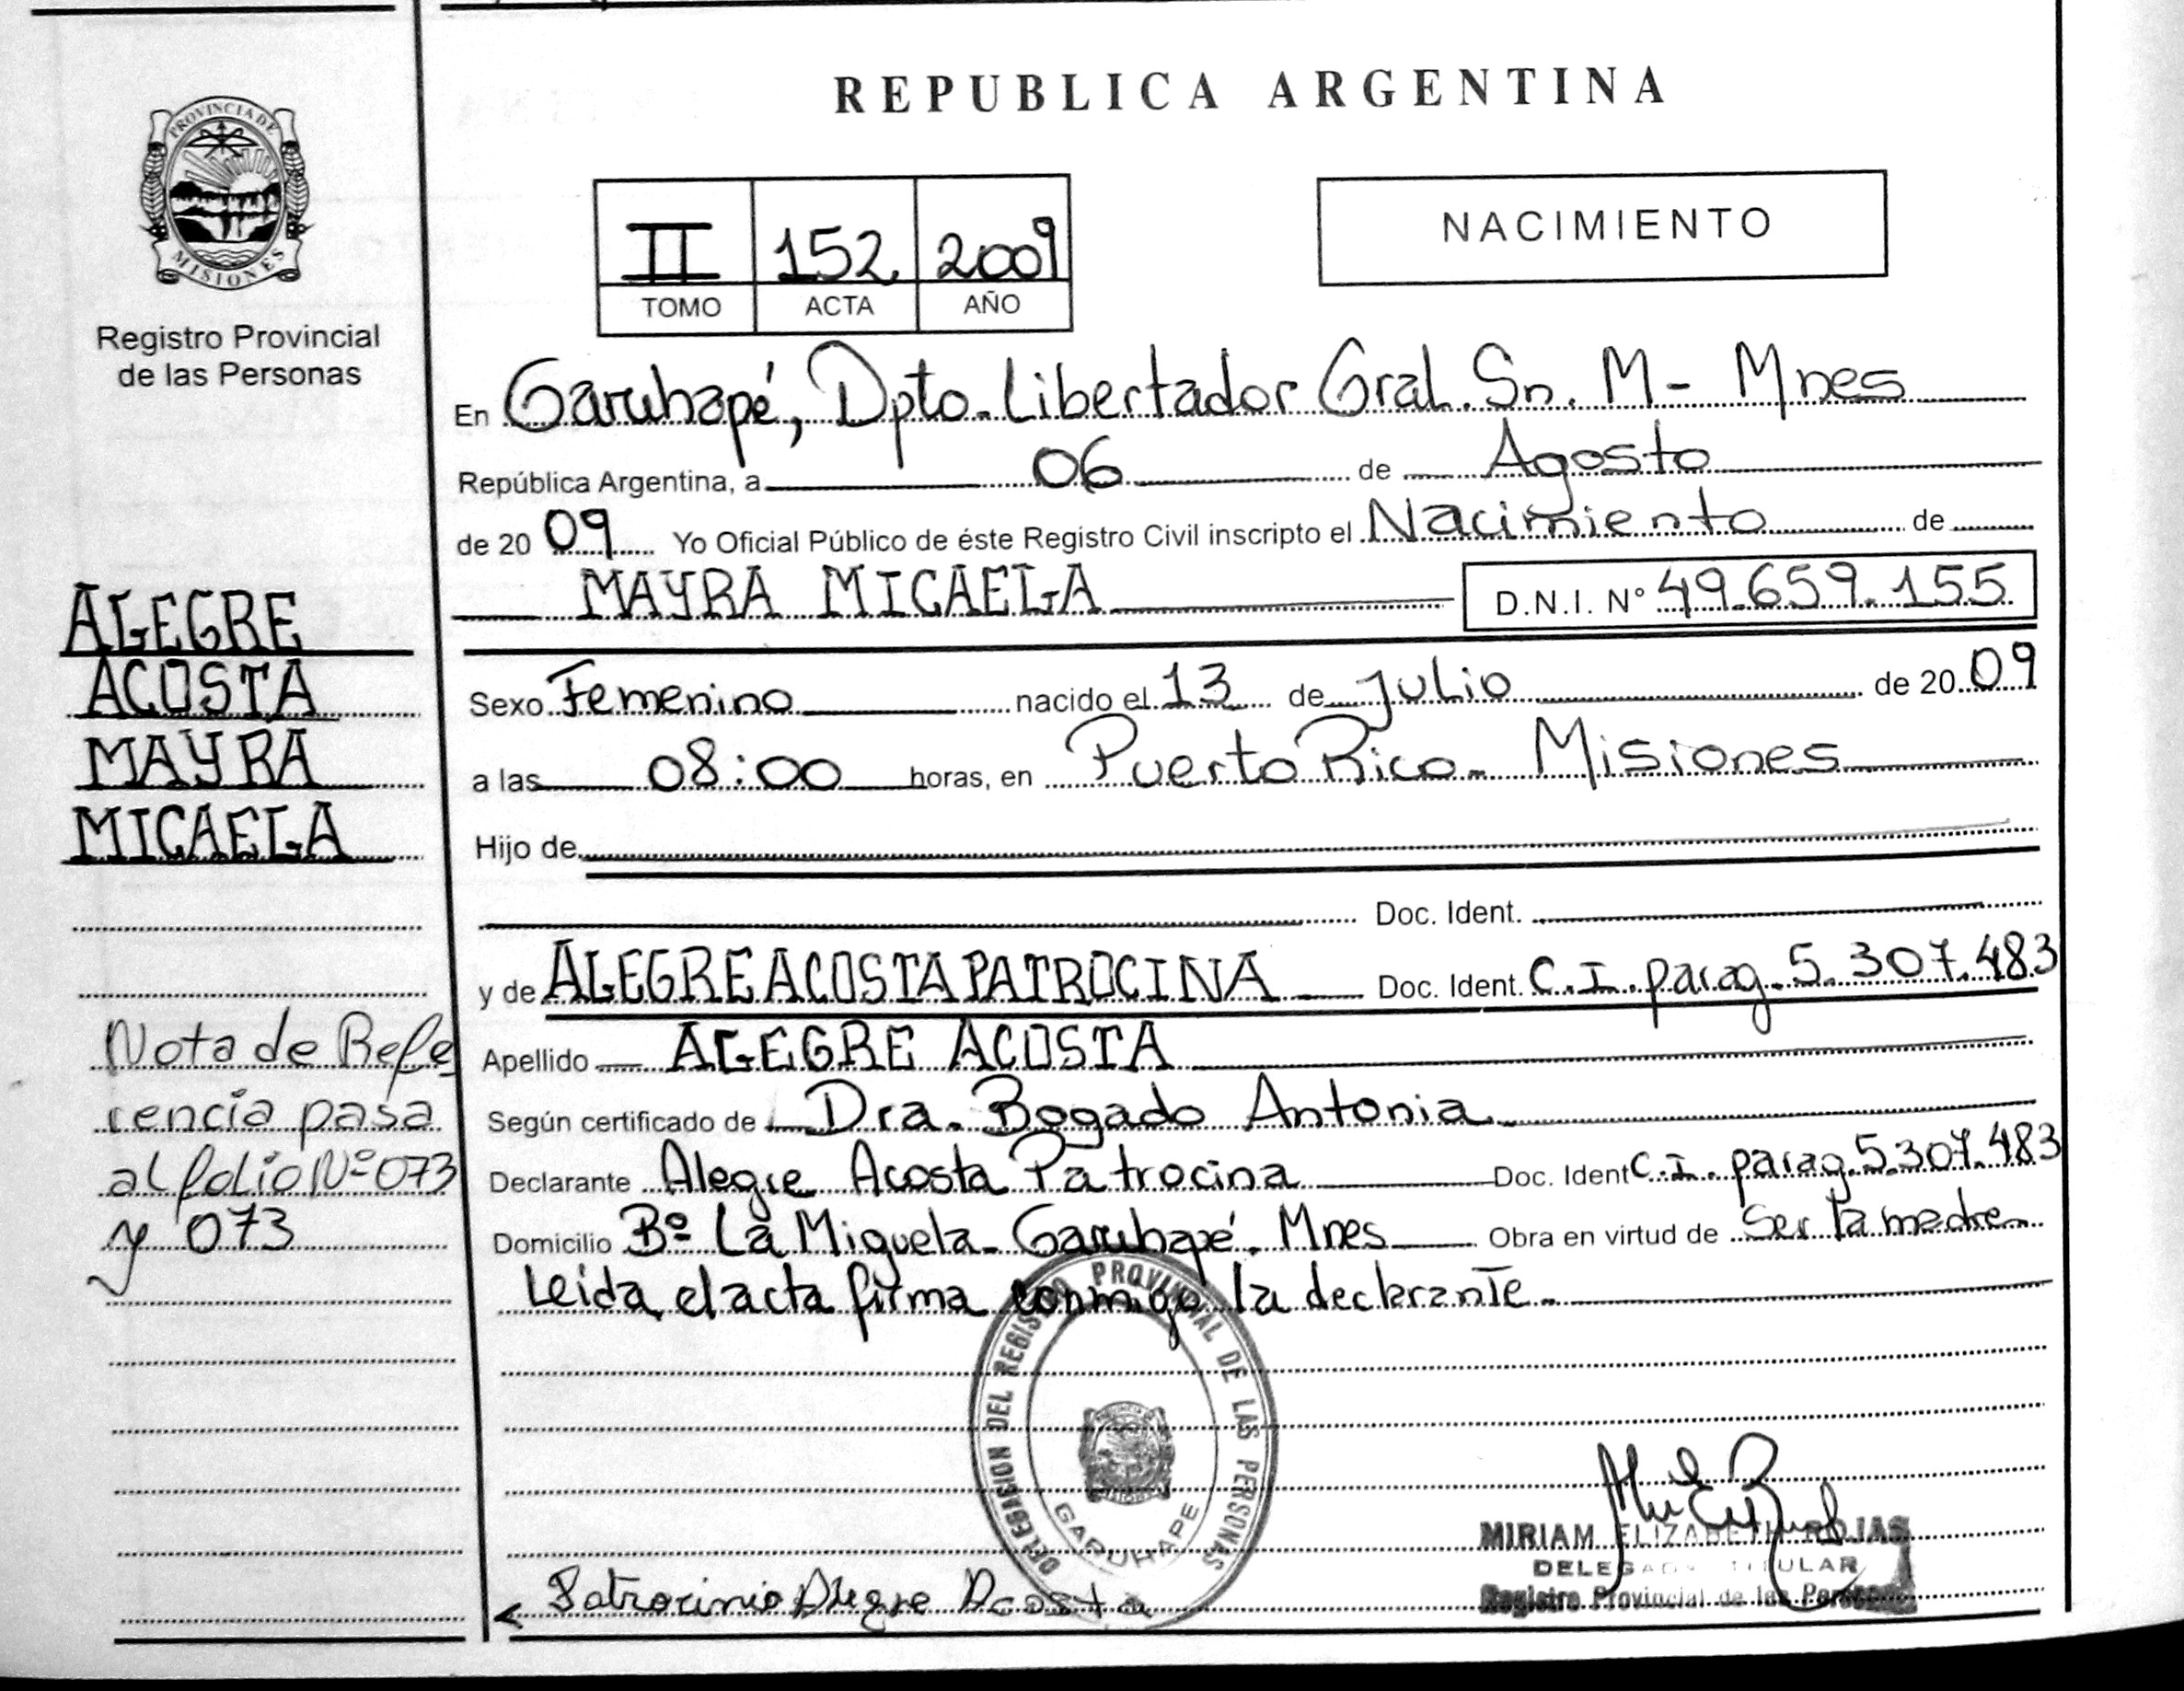 PROVINCIA DE
MISIONES
Registro Provincial
de las Personas
ALEGRE
ACOSTA
MAYRA
MICAELA
Nota de Refe
rencia pasa
al folio Nº 073
y 073
REPUBLICA ARGENTINA
II 152 2009
TOMO ACTA AÑO
NACIMIENTO
En Garuhapé, Dpto. Libertador Gral. Sn. M - Mnes
República Argentina, a 06 de Agosto
de 20 09 Yo Oficial Público de éste Registro Civil inscripto el Nacimiento de
MAYRA MICAELA D.N.I. Nº 49.659.155
Sexo Femenino nacido el 13 de Julio de 20 09
a las 08:00 horas, en Puerto Rico - Misiones
Hijo de
Doc. Ident.
y de ALEGRE ACOSTA PATROCINA Doc. Ident. C.I. parag. 5.307.483
Apellido ALEGRE ACOSTA
Según certificado de Dra. Bogado Antonia
Declarante Alegre Acosta Patrocina Doc. Ident C.I. parag. 5.307.483
Domicilio Bº La Miguela - Garuhapé. Mnes Obra en virtud de Ser la madre
Leida el acta firma conmigo la declarante.
DELEGACION DEL REGISTRO PROVINCIAL DE LAS PERSONAS
GARUHAPE
MIRIAM ELIZABETH ROJAS
DELEGADA TITULAR
Registro Provincial de las Personas
Patrocinio Alegre Acosta